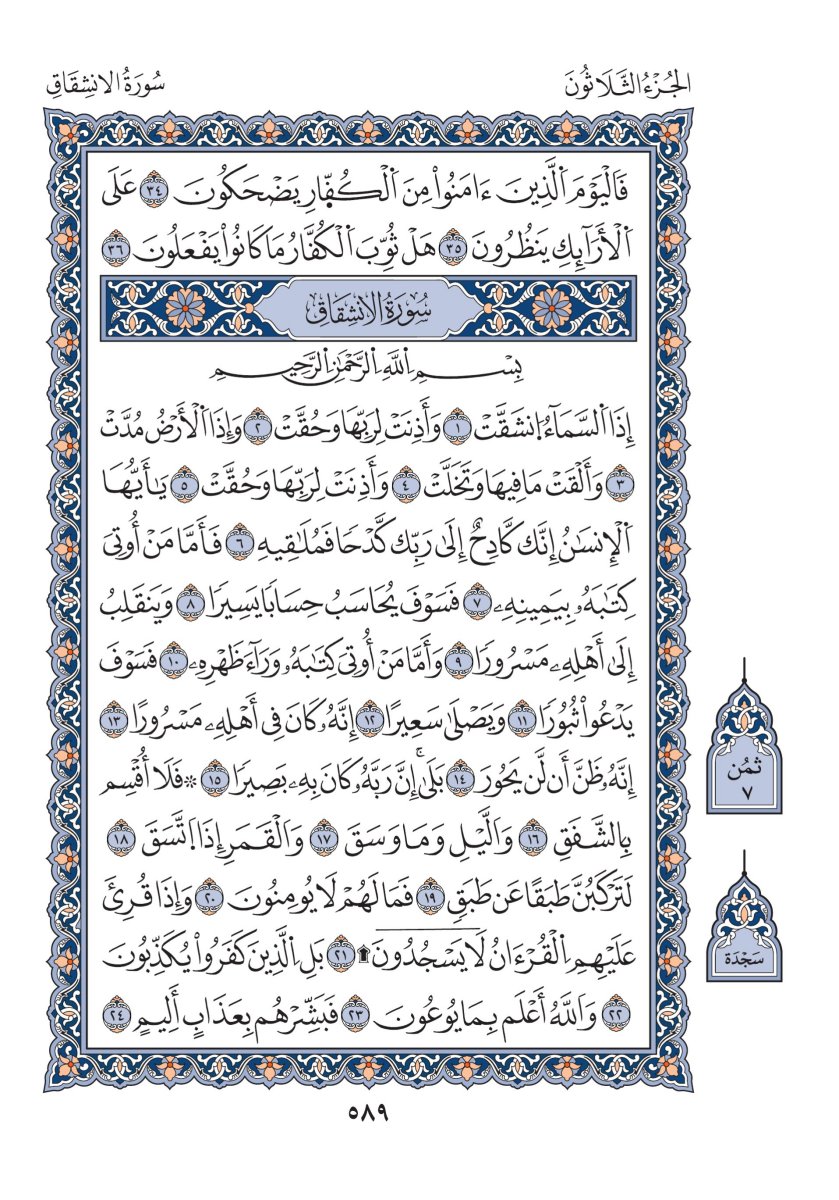 الجُزْءُ الثَّلَاثُونَ
سُورَةُ الانشِقَاقِ
فَالْيَوْمَ اَلَّذِينَ ءَامَنُواْ مِنَ اَلْكُفّ۪ارِ يَضْحَكُونَ ٣٤ عَلَى
اَلْأَرَآئِكِ يَنظُرُونَ ٣٥ هَلْ ثُوِّبَ اَلْكُفَّارُ مَا كَانُواْ يَفْعَلُونَ ٣٦
سُورَةُ الانشِقَاقِ
بِسْمِ اِللَّهِ اِلرَّحْمَٰنِ اِلرَّحِيمِ
إِذَا اَلسَّمَآءُ اُ۪نشَقَّتْ ١ وَأَذِنَتْ لِرَبِّهَا وَحُقَّتْ ٢ وَإِذَا اَلْأَرْضُ مُدَّتْ
٣ وَأَلْقَتْ مَا فِيهَا وَتَخَلَّتْ ٤ وَأَذِنَتْ لِرَبِّهَا وَحُقَّتْ ٥ يَٰأَيُّهَا
اَلْإِنسَٰنُ إِنَّك كَّادِحٌ إِلَىٰ رَبِّك كَّدْحًا فَمُلَٰقِيهِ ٦ فَأَمَّا مَنْ أُوتِىَ
كِتَٰبَهُۥ بِيَمِينِهِۦ ٧ فَسَوْفَ يُحَاسَبُ حِسَابًا يَسِيرًا ٨ وَيَنقَلِبُ
إِلَىٰ أَهْلِهِۦ مَسْرُورًا ٩ وَأَمَّا مَنْ أُوتِىَ كِتَٰبَهُۥ وَرَآءَ ظَهْرِهِۦ ١٠ فَسَوْفَ
يَدْعُواْ ثُبُورًا ١١ وَيَصْلَىٰ سَعِيرًا ١٢ إِنَّهُۥ كَانَ فِى أَهْلِهِۦ مَسْرُورًا ١٣
إِنَّهُۥ ظَنَّ أَن لَّن يَحُورَ ١٤ بَلَىٰۚ إِنَّ رَبَّهُۥ كَانَ بِهِۦ بَصِيرًا ١٥ ۞ فَلَا أُقْسِم
بِالشَّفَقِ ١٦ وَاَلَّيْلِ وَمَا وَسَقَ ١٧ وَاَلْقَمَرِ إِذَا اَ۪تَّسَقَ ١٨
لَتَرْكَبُنَّ طَبَقًا عَن طَبَقٍ ١٩ فَمَا لَهُمْ لَا يُومِنُونَ ٢٠ وَإِذَا قُرِئَ
عَلَيْهِمِ اِلْقُرْءَانُ لَا يَسْجُدُونَ۩ ٢١ بَلِ اِلَّذِينَ كَفَرُواْ يُكَذِّبُونَ
٢٢ وَاَللَّهُ أَعْلَم بِمَا يُوعُونَ ٢٣ فَبَشِّرْهُم بِعَذَابٍ أَلِيمٍ ٢٤
ثُمُن
٧
سَجْدَة
٥٨٩